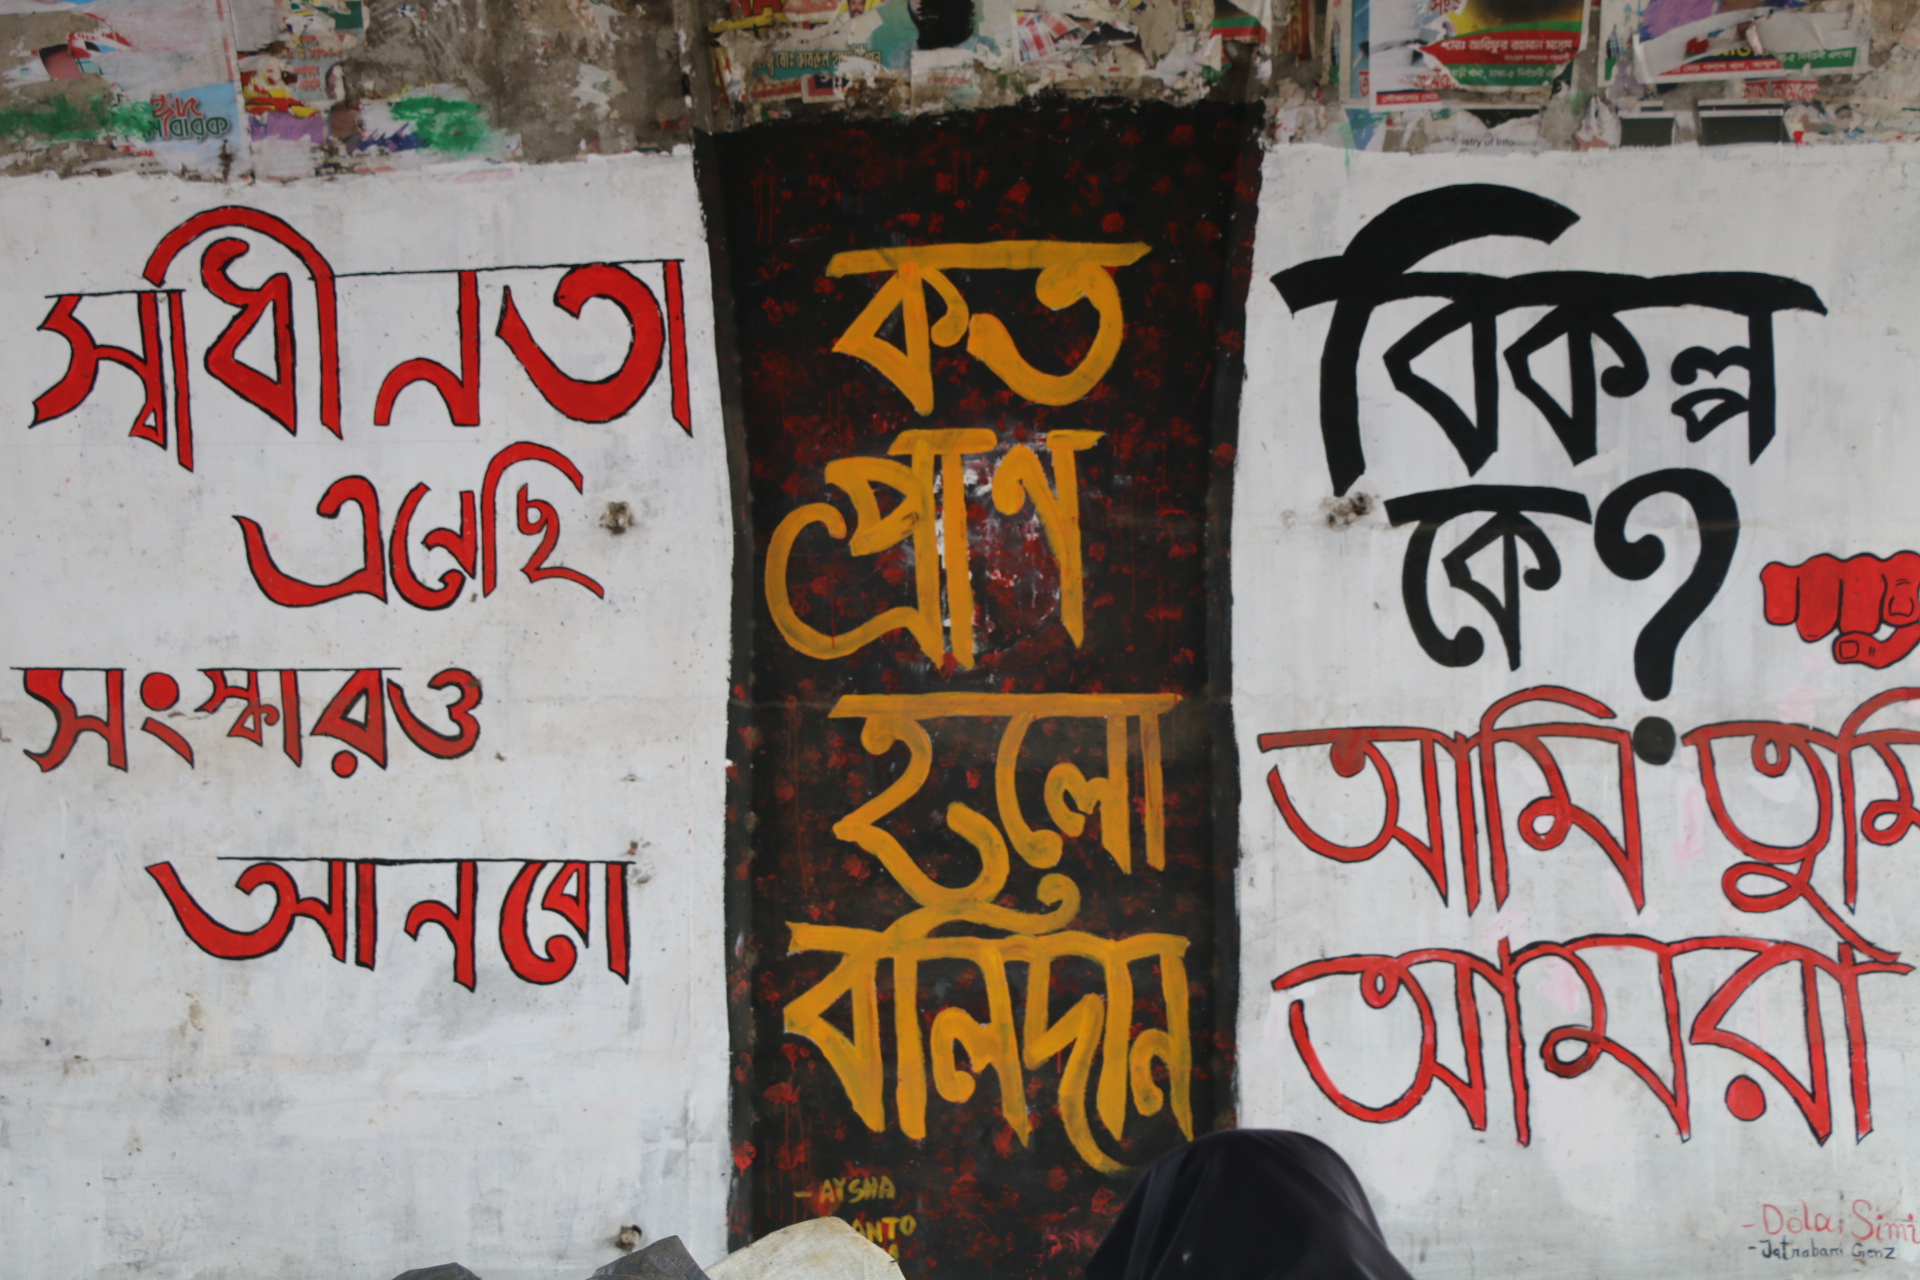 স্বাধীনতা
এনেছি
সংস্কারও
আনবো
কত
প্রাণ
হলো
বলিদান
- AYSHA
ANTO
বিকল্প
কে?
আমি তুমি
আমরা
- Dolai Simi
- Jatrabari Genz